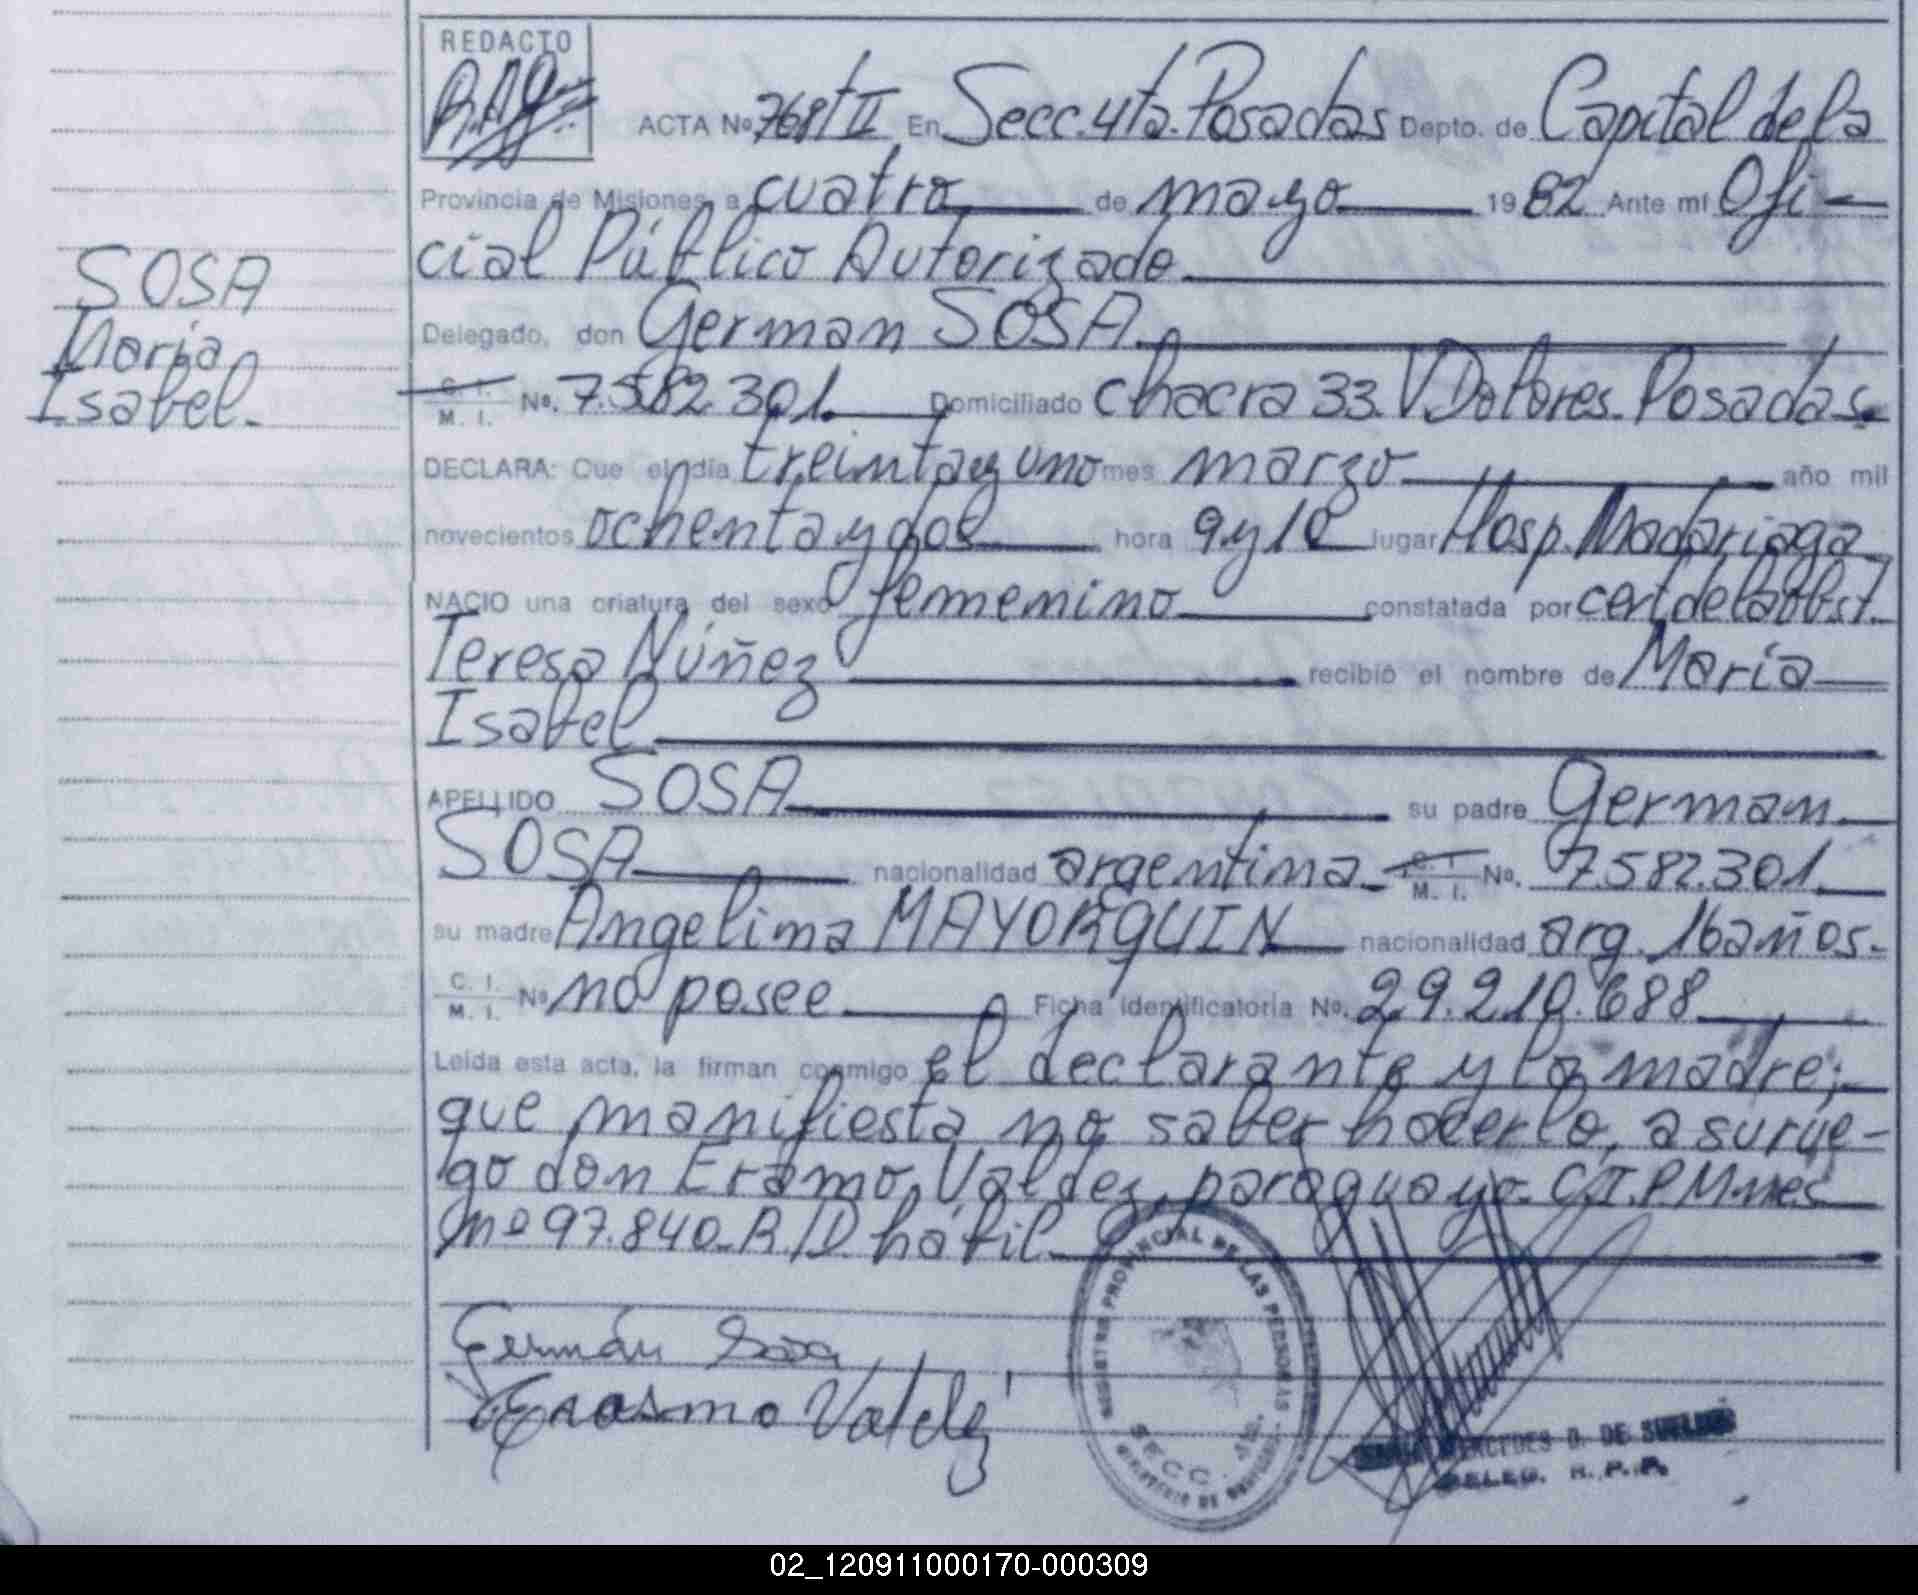 REDACTO
ACTA No. 768 t II En Secc. 4ta. Posadas Depto. de Capital de la
Provincia de Misiones, a cuatro de mayo 1982 Ante mí Ofi-
cial Público Autorizado
Delegado, don German SOSA
SOSA
María
Isabel.
C. I. M. I. No. 7.582.301. Domiciliado chacra 33. V Dolores. Posadas.
DECLARA: Que el día treinta y uno mes marzo año mil
novecientos ochenta y dos hora 9 y 10 lugar Hosp. Madariaga
NACIO una criatura del sexo femenino constatada por cert de la obst.
Teresa Núñez recibió el nombre de María
Isabel
APELLIDO SOSA su padre German
SOSA nacionalidad argentina C. I. M. I. No. 7.582.301.
su madre Angelina MAYORQUIN nacionalidad arg. 16 años.
C. I. M. I. No. no posee Ficha identificatoria No. 29.210.688
Leída esta acta, la firman conmigo el declarante y la madre;
que manifiesta no saber hacerlo, a su rue-
go don Eramo Valdez, paraguayo C.I.P.Mnes
nº 97.840. R/D hábil.
Germán Sosa
Erasmo Valdéz
REGISTRO PROVINCIAL DE LAS PERSONAS
SECC. 4ta.
MERCEDES D. DE
DELEG. R. P. P.
02_120911000170-000309